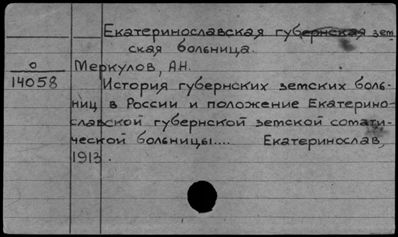 Екатеринославская губернская зем
ская больница.
О
14058
Меркулов, А.Н.
История губернских земских боль-
ниц в России и положение Екатерино-
славской губернской земской сомати-
ческой больницы.... Екатеринослав,
1913.